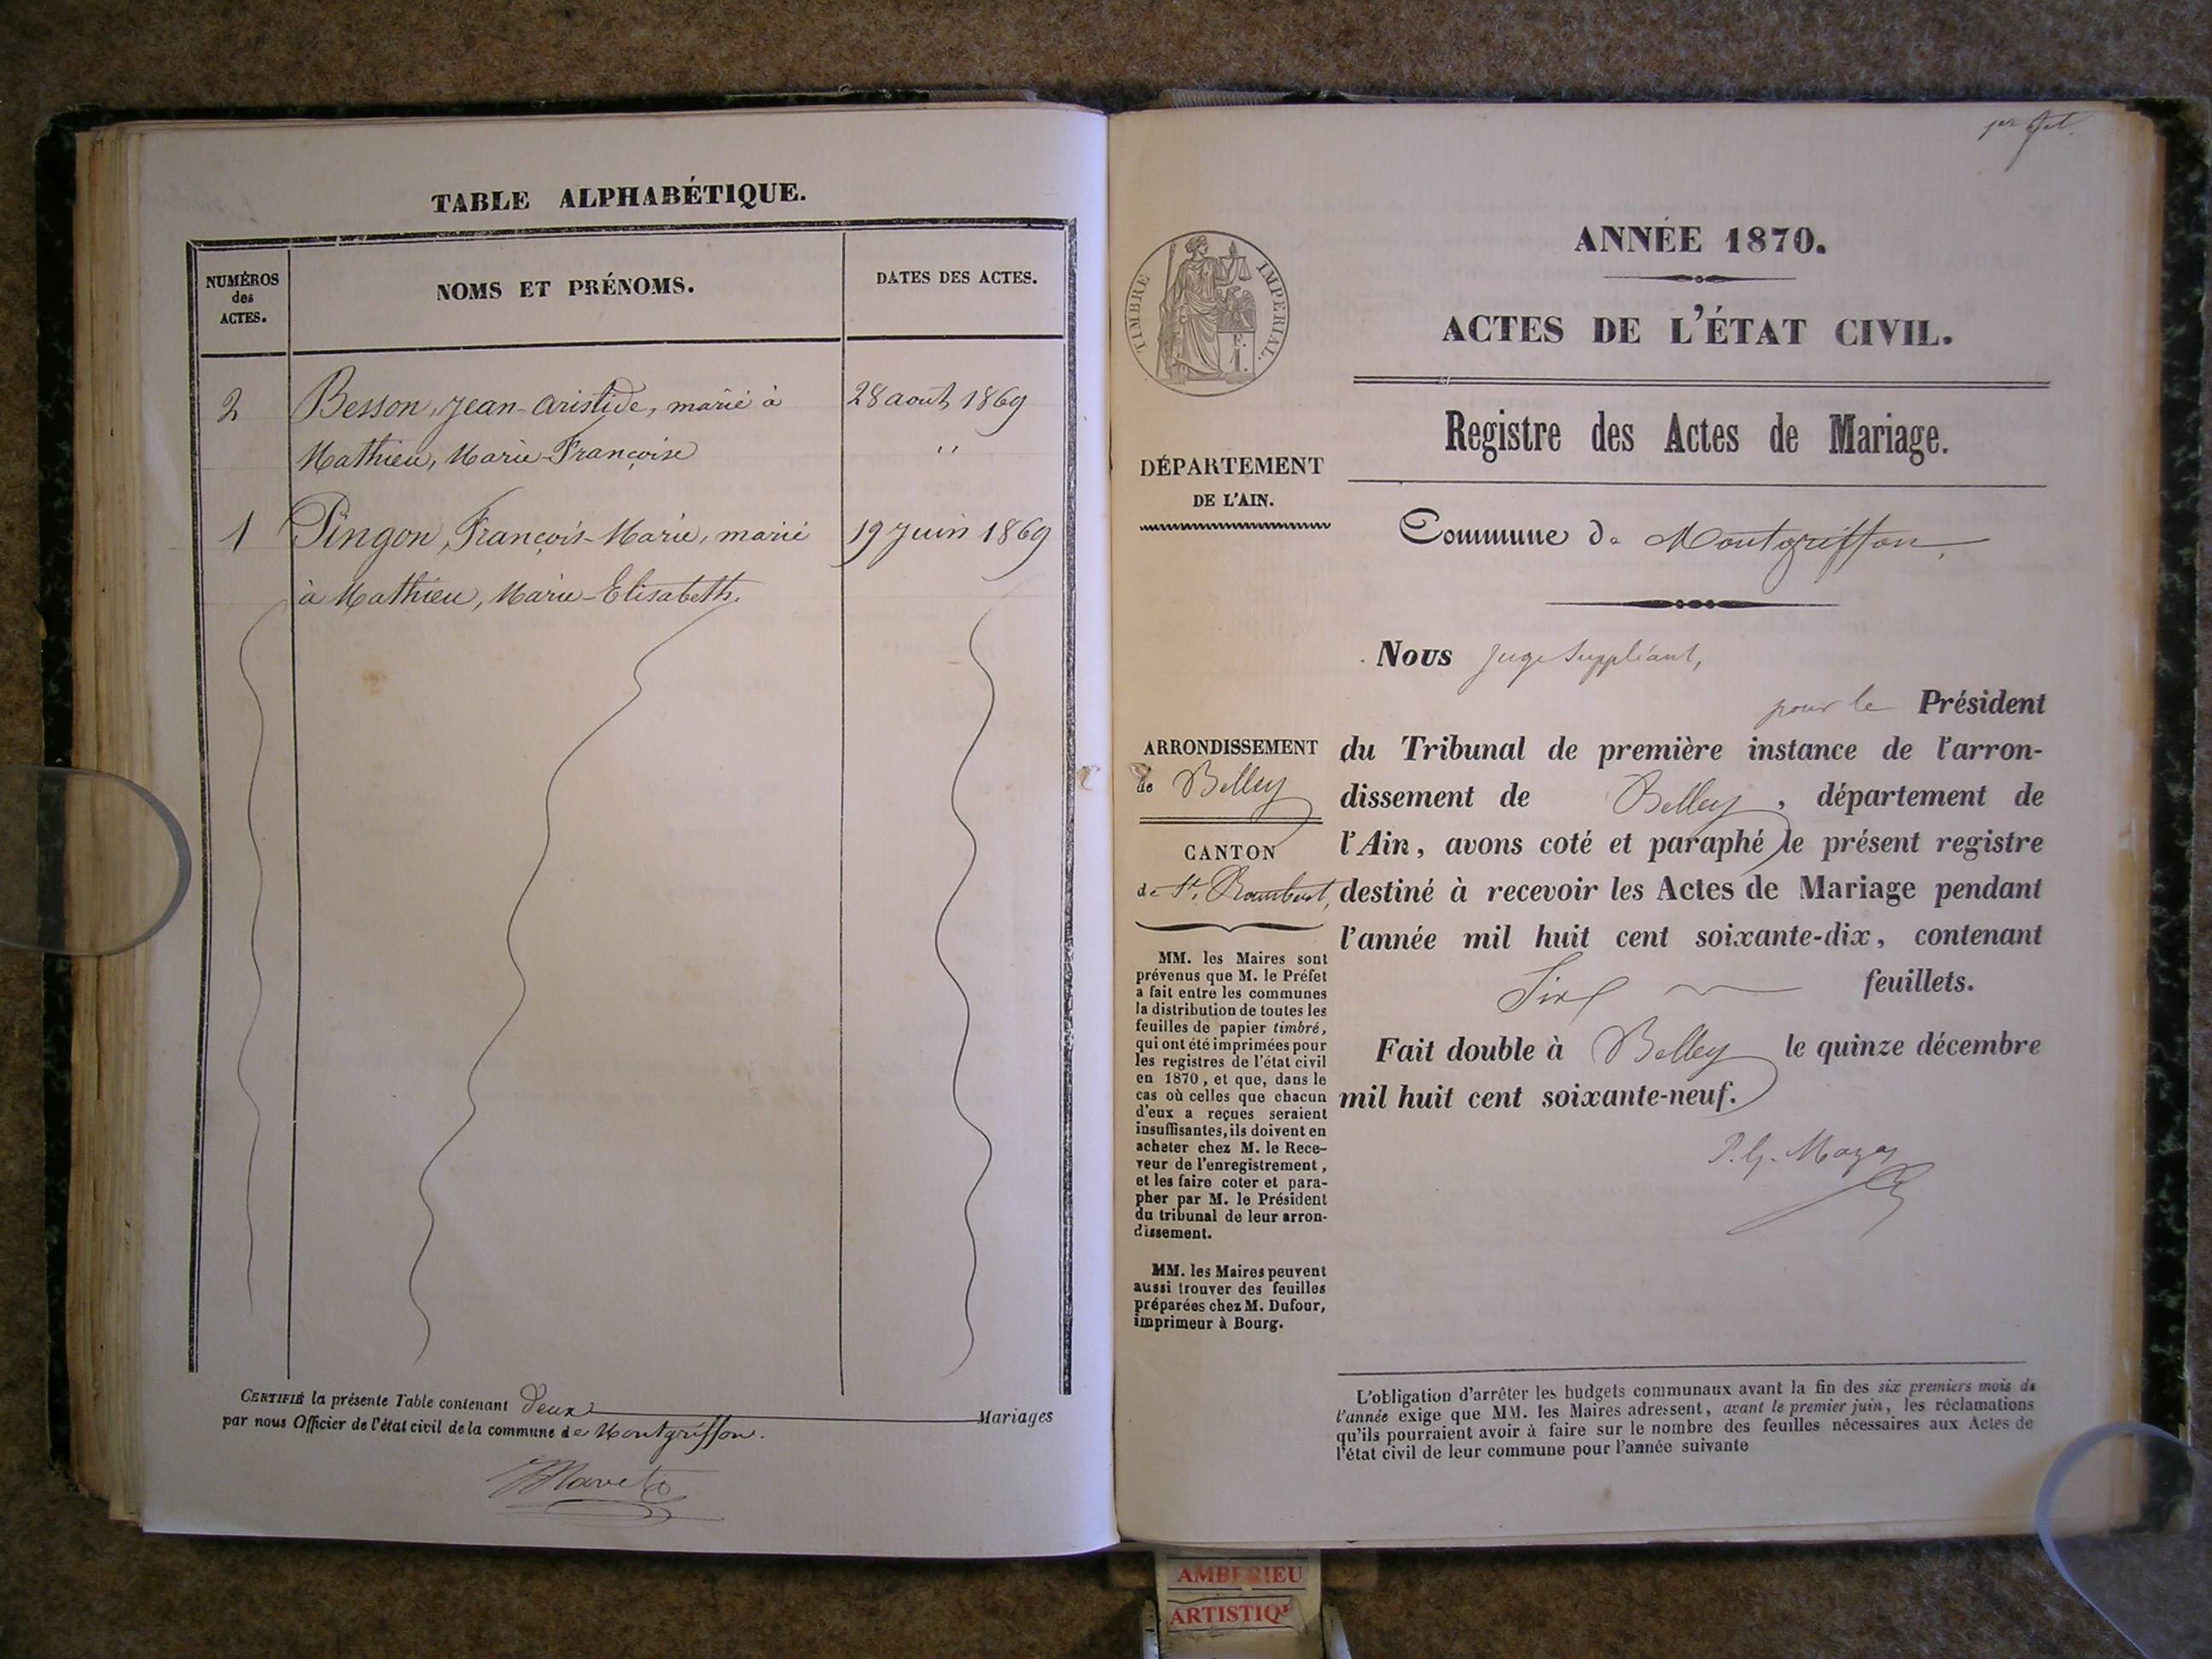 TABLE ALPHABÉTIQUE.
NUMÉROS
des
ACTES.
NOMS ET PRÉNOMS.
DATES DES ACTES.
2 Besson, Jean-Aristide, marié à 28 aout 1869
Mathieu, Marie-Françoise ''
1 Pingon, François-Marie, marié 19 Juin 1869
à Mathieu, Marie-Elisabeth.
CERTIFIÉ la présente Table contenant Deux Mariages
par nous Officier de l'état civil de la commune de Montgriffon.
1er
TIMBRE IMPERIAL.
F.
1.
DÉPARTEMENT
DE L'AIN.
ARRONDISSEMENT
de Belley
CANTON
de St. Rambert,
MM. les Maires sont
prévenus que M. le Préfet
a fait entre les communes
la distribution de toutes les
feuilles de papier timbré,
qui ont été imprimées pour
les registres de l'état civil
en 1870, et que, dans le
cas où celles que chacun
d'eux a reçues seraient
insuffisantes, ils doivent en
acheter chez M. le Rece-
veur de l'enregistrement,
et les faire coter et para-
pher par M. le Président
du tribunal de leur arron-
dissement.
MM. les Maires peuvent
aussi trouver des feuilles
préparées chez M. Dufour,
imprimeur à Bourg.
ANNÉE 1870.
ACTES DE L'ÉTAT CIVIL.
Registre des Actes de Mariage.
Commune de Montgriffon,
Nous Juge Suppléant,
pour le Président
du Tribunal de première instance de l'arron-
dissement de Belley, département de
l'Ain, avons coté et paraphé le présent registre
destiné à recevoir les Actes de Mariage pendant
l'année mil huit cent soixante-dix, contenant
Six feuillets.
Fait double à Belley le quinze décembre
mil huit cent soixante-neuf.
L'obligation d'arrêter les budgets communaux avant la fin des six premiers mois de
l'année exige que MM. les Maires adressent, avant le premier juin, les réclamations
qu'ils pourraient avoir à faire sur le nombre des feuilles nécessaires aux Actes de
l'état civil de leur commune pour l'année suivante
AMBERIEU
ARTISTIQ